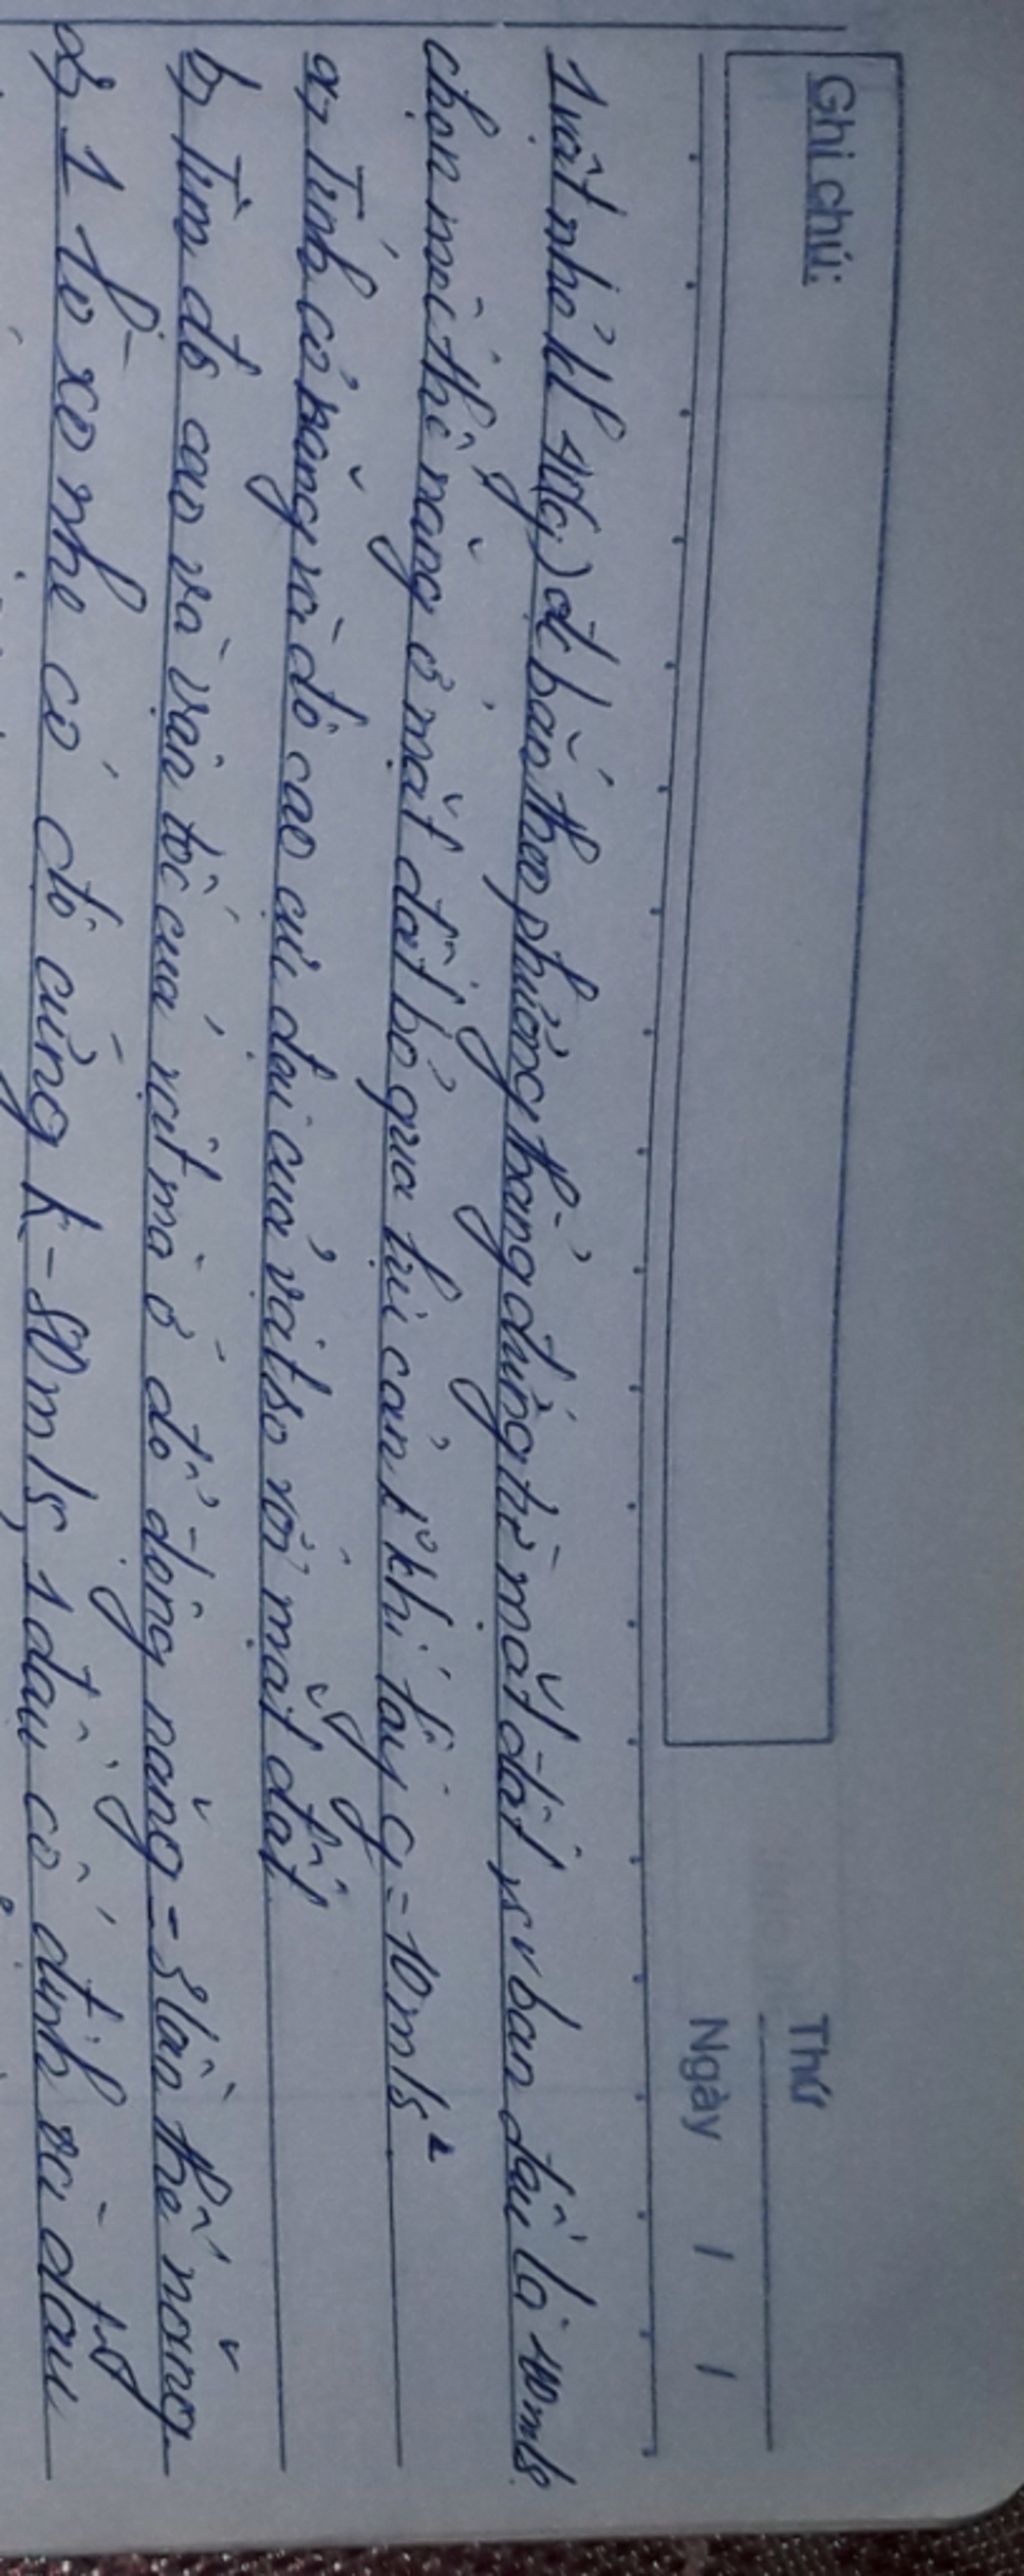 Ghi chú:
Thứ
Ngày / /
1 vật nhỏ kl (g) đc bắn theo phương thẳng đứng từ mặt đất vs v ban đầu là m/s
chọn mốc thế năng ở mặt đất bỏ qua lực cản k² khí lấy g = 10m/s²
a, Tính cơ năng và độ cao cực đại của vật so với mặt đất
b, Tìm độ cao và vận tốc của vật mà ở đó động năng = 3 lần thế năng
1 lò xo nhẹ có độ cứng k = 80 m/s, 1 đầu cố định và đầu